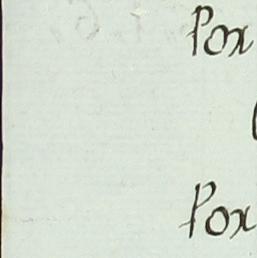 Pox
Pox